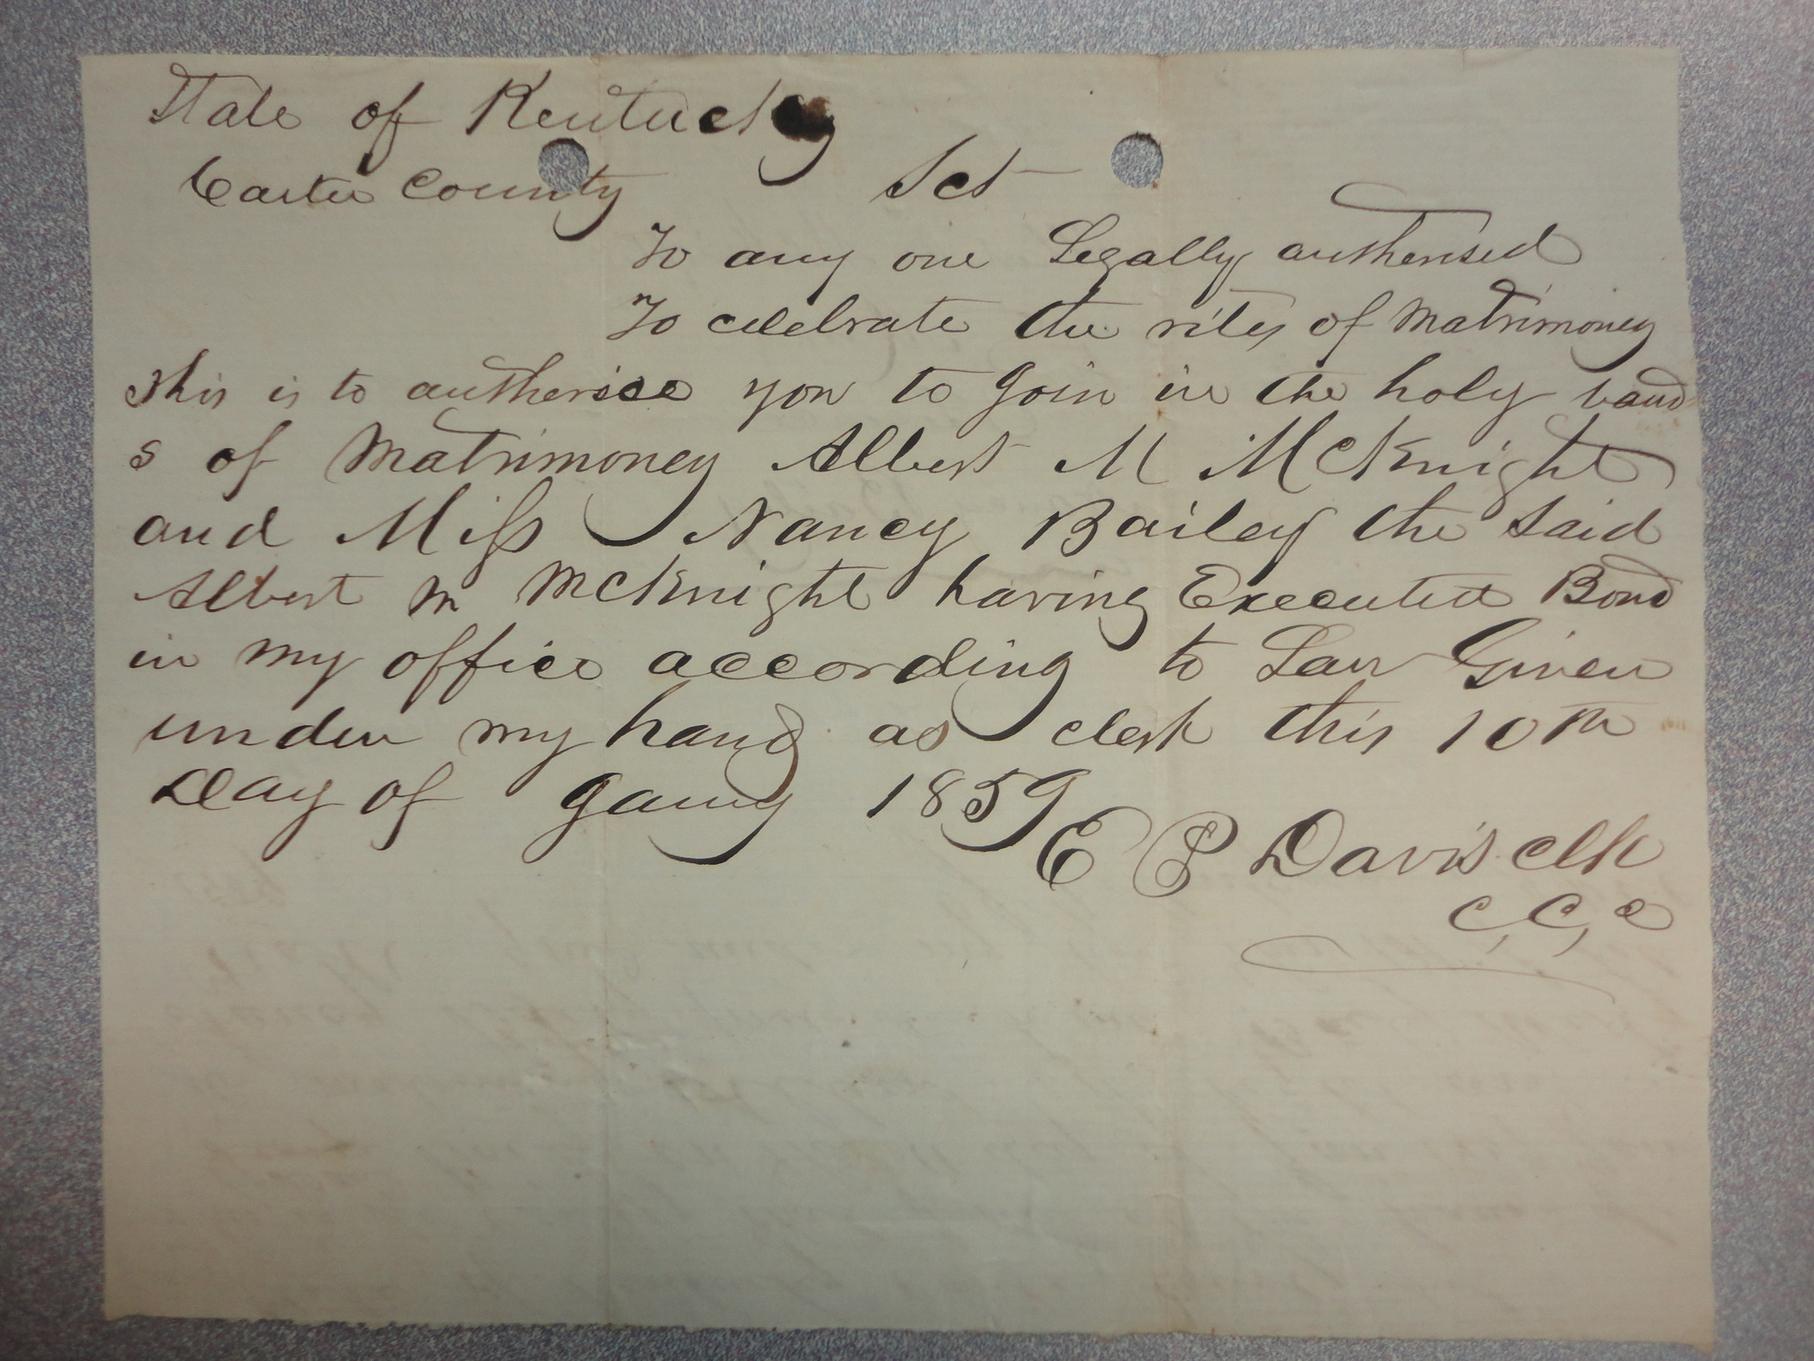 State of Kentucky
Carter County Sct
To any one Legally autherised
To celebrate the rites of Matrimoney
This is to autherise you to Join in the holy band
s of Matrimoney Albert M McKnight
and Miss Nancy Bailey the Said
Albert M McKnight having Executed Bond
in my office according to Law Given
under my hand as clerk this 10th
Day of Jany 1859
E P Davis clk
C, C, C